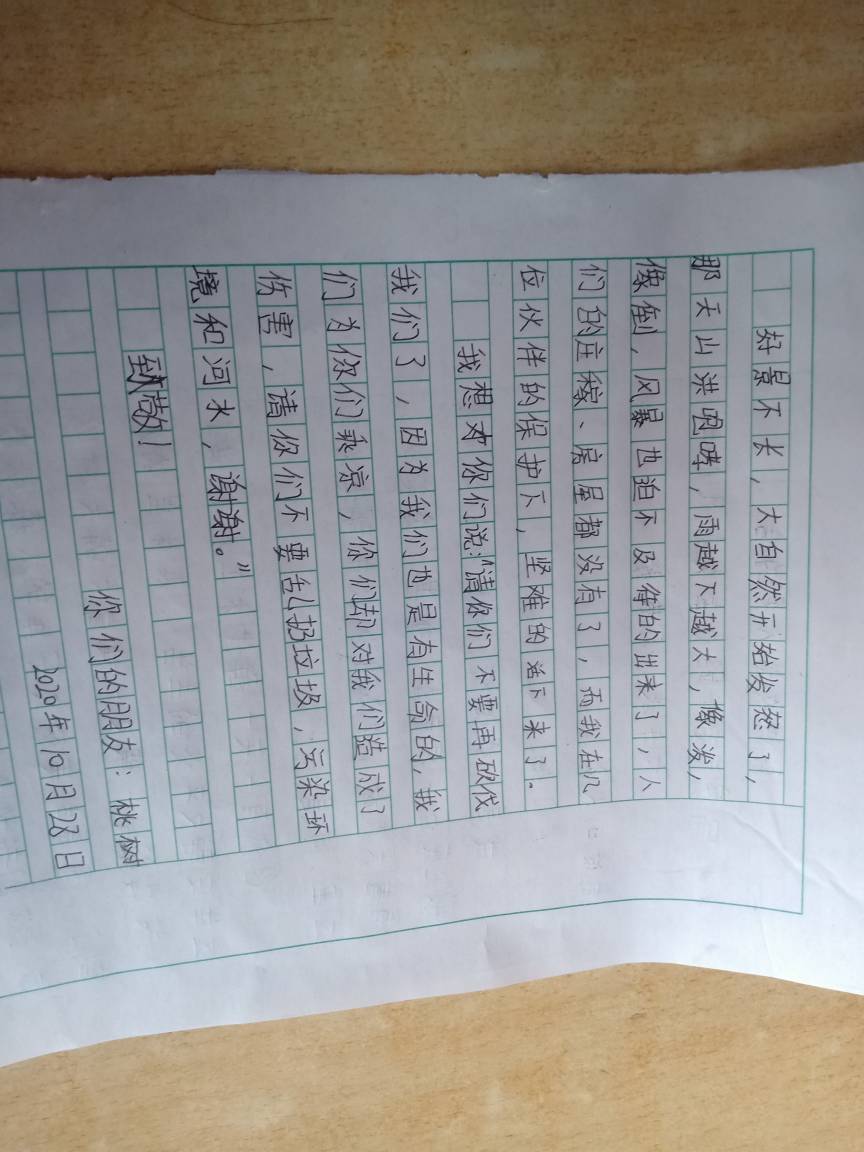 好景不长，大自然开始发怒了，
那天山洪咆哮，雨越下越大，像泼，
像倒，风暴也迫不及待的出来了，人
们的庄稼、房屋都没有了，而我在几
位伙伴的保护下，坚难的活下来了。
我想对你们说：“请你们不要再砍伐
我们了，因为我们也是有生命的，我
们为你们乘凉，你们却对我们造成了
伤害，请你们不要乱扔垃圾，污染环
境和河水，谢谢。”
致敬！
你们的朋友：桃树
2020年10月28日